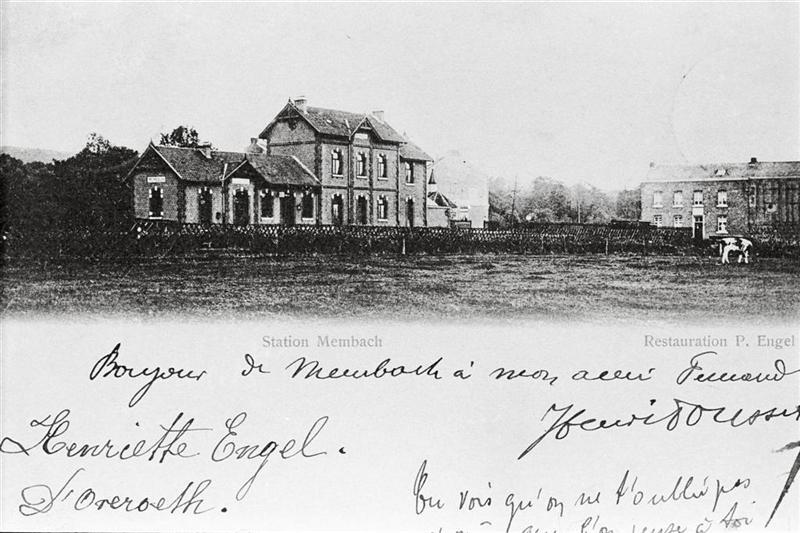 Station Membach
Restauration P. Engel
Bonjour de Membach à mon ami Fernand
Henri
Henriette Engel.
D'Overoeth.
Tu vois qu'on ne t'oublie pas
que l'on pense à toi